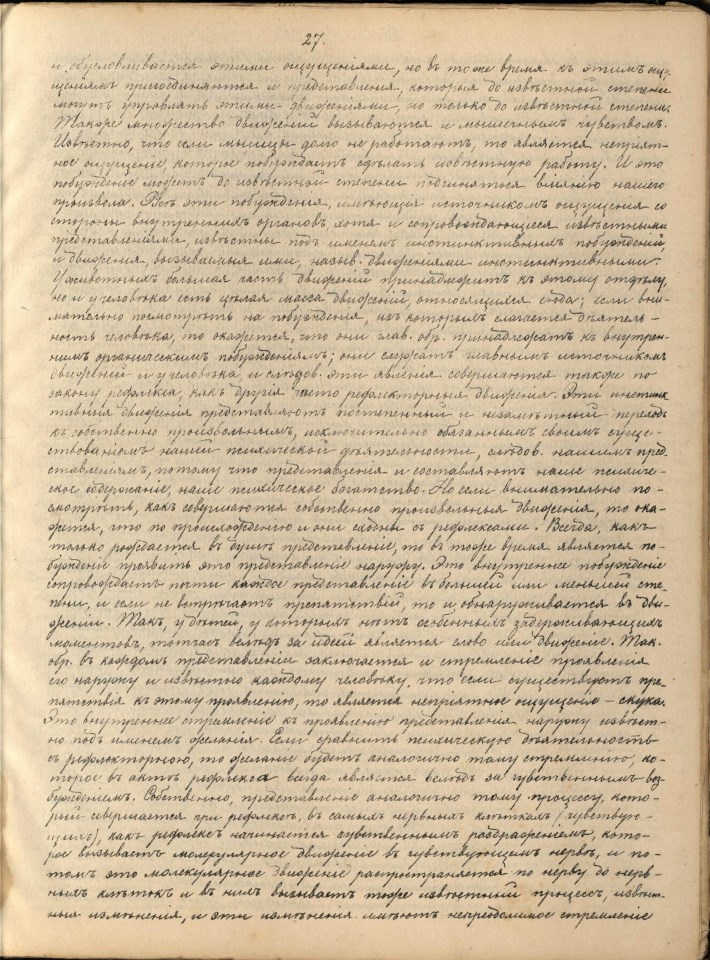 27.
и обусловливается этими ощущениями, но въ тоже время къ этимъ ощу-
щеніямъ присоединяются и представленія, которыя до извѣстной степени
могутъ управлять этими движеніями, но только до извѣстной степени.
Также множество движеній вызываются и мышечнымъ чувствомъ.
Извѣстно, что если мышцы долго не работаютъ, то является непріят-
ное ощущеніе, которое побуждаетъ сдѣлать извѣстную работу. И это
побужденіе можетъ до извѣстной степени подчиняться вліянію нашего
произвола. Всѣ эти побужденія, имѣющія источникомъ ощущенія со
стороны внутреннихъ органовъ, хотя и сопровождающіеся извѣстными
представленіями, извѣстны подъ именемъ инстинктивныхъ побужденій,
и движенія, вызываемыя ими, назыв. движеніями инстинктивными.
У животныхъ большая часть движеній принадлежитъ къ этому отдѣлу,
но и у человѣка есть цѣлая масса движеній, относящихся сюда; если вни-
мательно посмотрѣть на побужденія, изъ которыхъ слагается дѣятель-
ность человѣка, то окажется, что они глав. обр. принадлежатъ къ внутрен-
нимъ органическимъ побужденіямъ; они служатъ главнымъ источникомъ
движеній и у человѣка, и слѣдов. эти явленія совершаются также по
закону рефлекса, какъ другія чисто рефлекторныя движенія. Эти инстинк
тивныя движенія представляютъ постепенный и незамѣтный переходъ
къ собственно произвольнымъ, исключительно обязаннымъ своимъ суще-
ствованіемъ нашей психической дѣятельности, слѣдов. нашимъ пред-
ставленіямъ, потому что представленія и составляютъ наше психиче-
ское содержаніе, наше психическое богатство. Но если внимательно по-
смотрѣть, какъ совершаются собственно произвольныя движенія, то ока-
жется, что по происхожденію и они сходны съ рефлексами. Всегда, какъ
только рождается въ душѣ представленіе, то въ тоже время является по-
бужденіе проявить это представленіе наружу. Это внутреннее побужденіе
сопровождаетъ почти каждое представленіе въ большей или меньшей сте-
пени, и если не встрѣчаетъ препятствій, то и обнаруживается въ дви-
женіи. Такъ, у дѣтей, у которыхъ нѣтъ особенныхъ задерживающихъ
моментовъ, тотчасъ вслѣдъ за идеей является слово или движеніе. Так.
обр. въ каждомъ представленіи заключается и стремленіе проявленія
его наружу и извѣстно каждому человѣку, что если существуетъ пре-
пятствія къ этому проявленію, то является непріятное ощущеніе – скука.
Это внутреннее стремленіе къ проявленію представленія наружу извѣст-
но подъ именемъ желанія. Если сравнить психическую дѣятельность
съ рефлекторною, то желаніе будетъ аналогично тому стремленію, ко-
торое въ актѣ рефлекса всегда является вслѣдъ за чувственнымъ воз-
бужденіемъ. Собственно, представленіе аналогично тому процессу, кото-
рый совершается при рефлексѣ, въ самыхъ нервныхъ клѣткахъ (чувствую-
щихъ), какъ рефлексъ начинается чувственнымъ раздраженіемъ, кото-
рое вызываетъ молекулярное движеніе въ чувствующемъ нервѣ, и по-
томъ это молекулярное движеніе распространяется по нерву до нерв-
ныхъ клѣтокъ и въ нихъ вызываетъ тоже извѣстный процессъ, извѣст-
ныя измѣненія, и эти измѣненія имѣютъ непреодолимое стремленіе